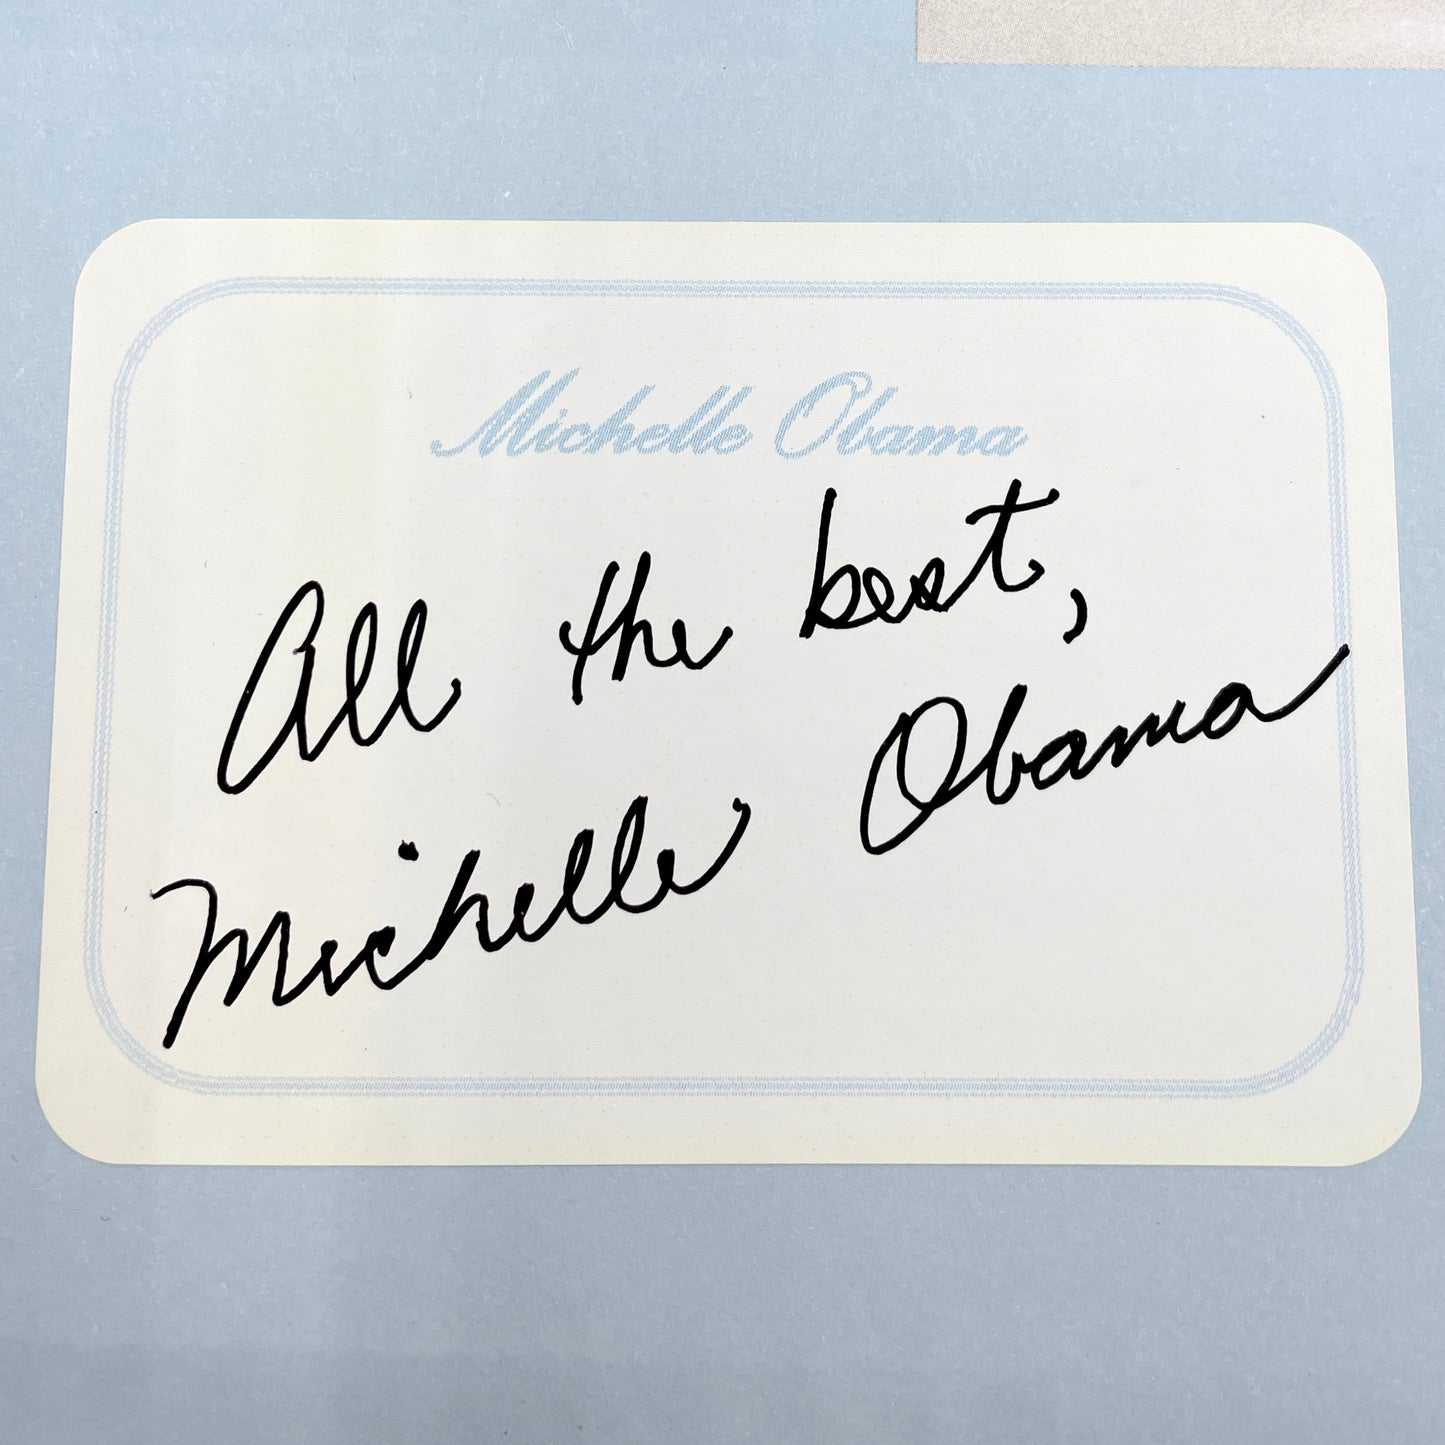 Michelle Obama
All the best,
Michelle Obama